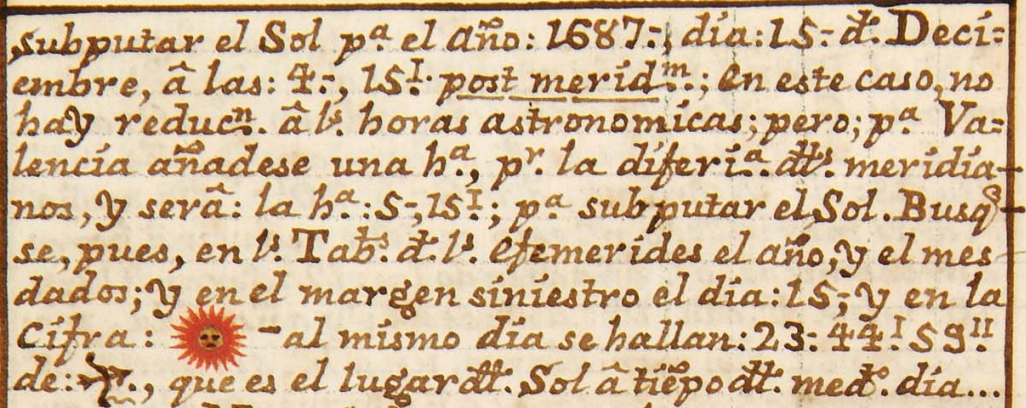 subputar el Sol pª el año: 1687-, dia: 15- đ. Deci=
embre, â las: 4-, 15ᴵ· post meridᵐ.; en este caso, no
hay reducⁿ. â lˢ. horas astronomicas; pero; pª Va=
lencia añadese una hª., pʳ. la diferiª. đłˢ. meridia-
nos, y serâ: la hª.: 5-, 15ᴵ; pª subputar el Sol. Busq̃-
se, pues, en lˢ. Tabˢ. đ. lˢ. efemerides el año, y el mes
dados; y en el margen siniestro el dia: 15- y en la
Cifra: ☉ -al mismo dia se hallan: 23: 44ᴵ 59ᴵᴵ
de: ♐., que es el lugar đł. Sol â tiẽpo đł. medº. dia...